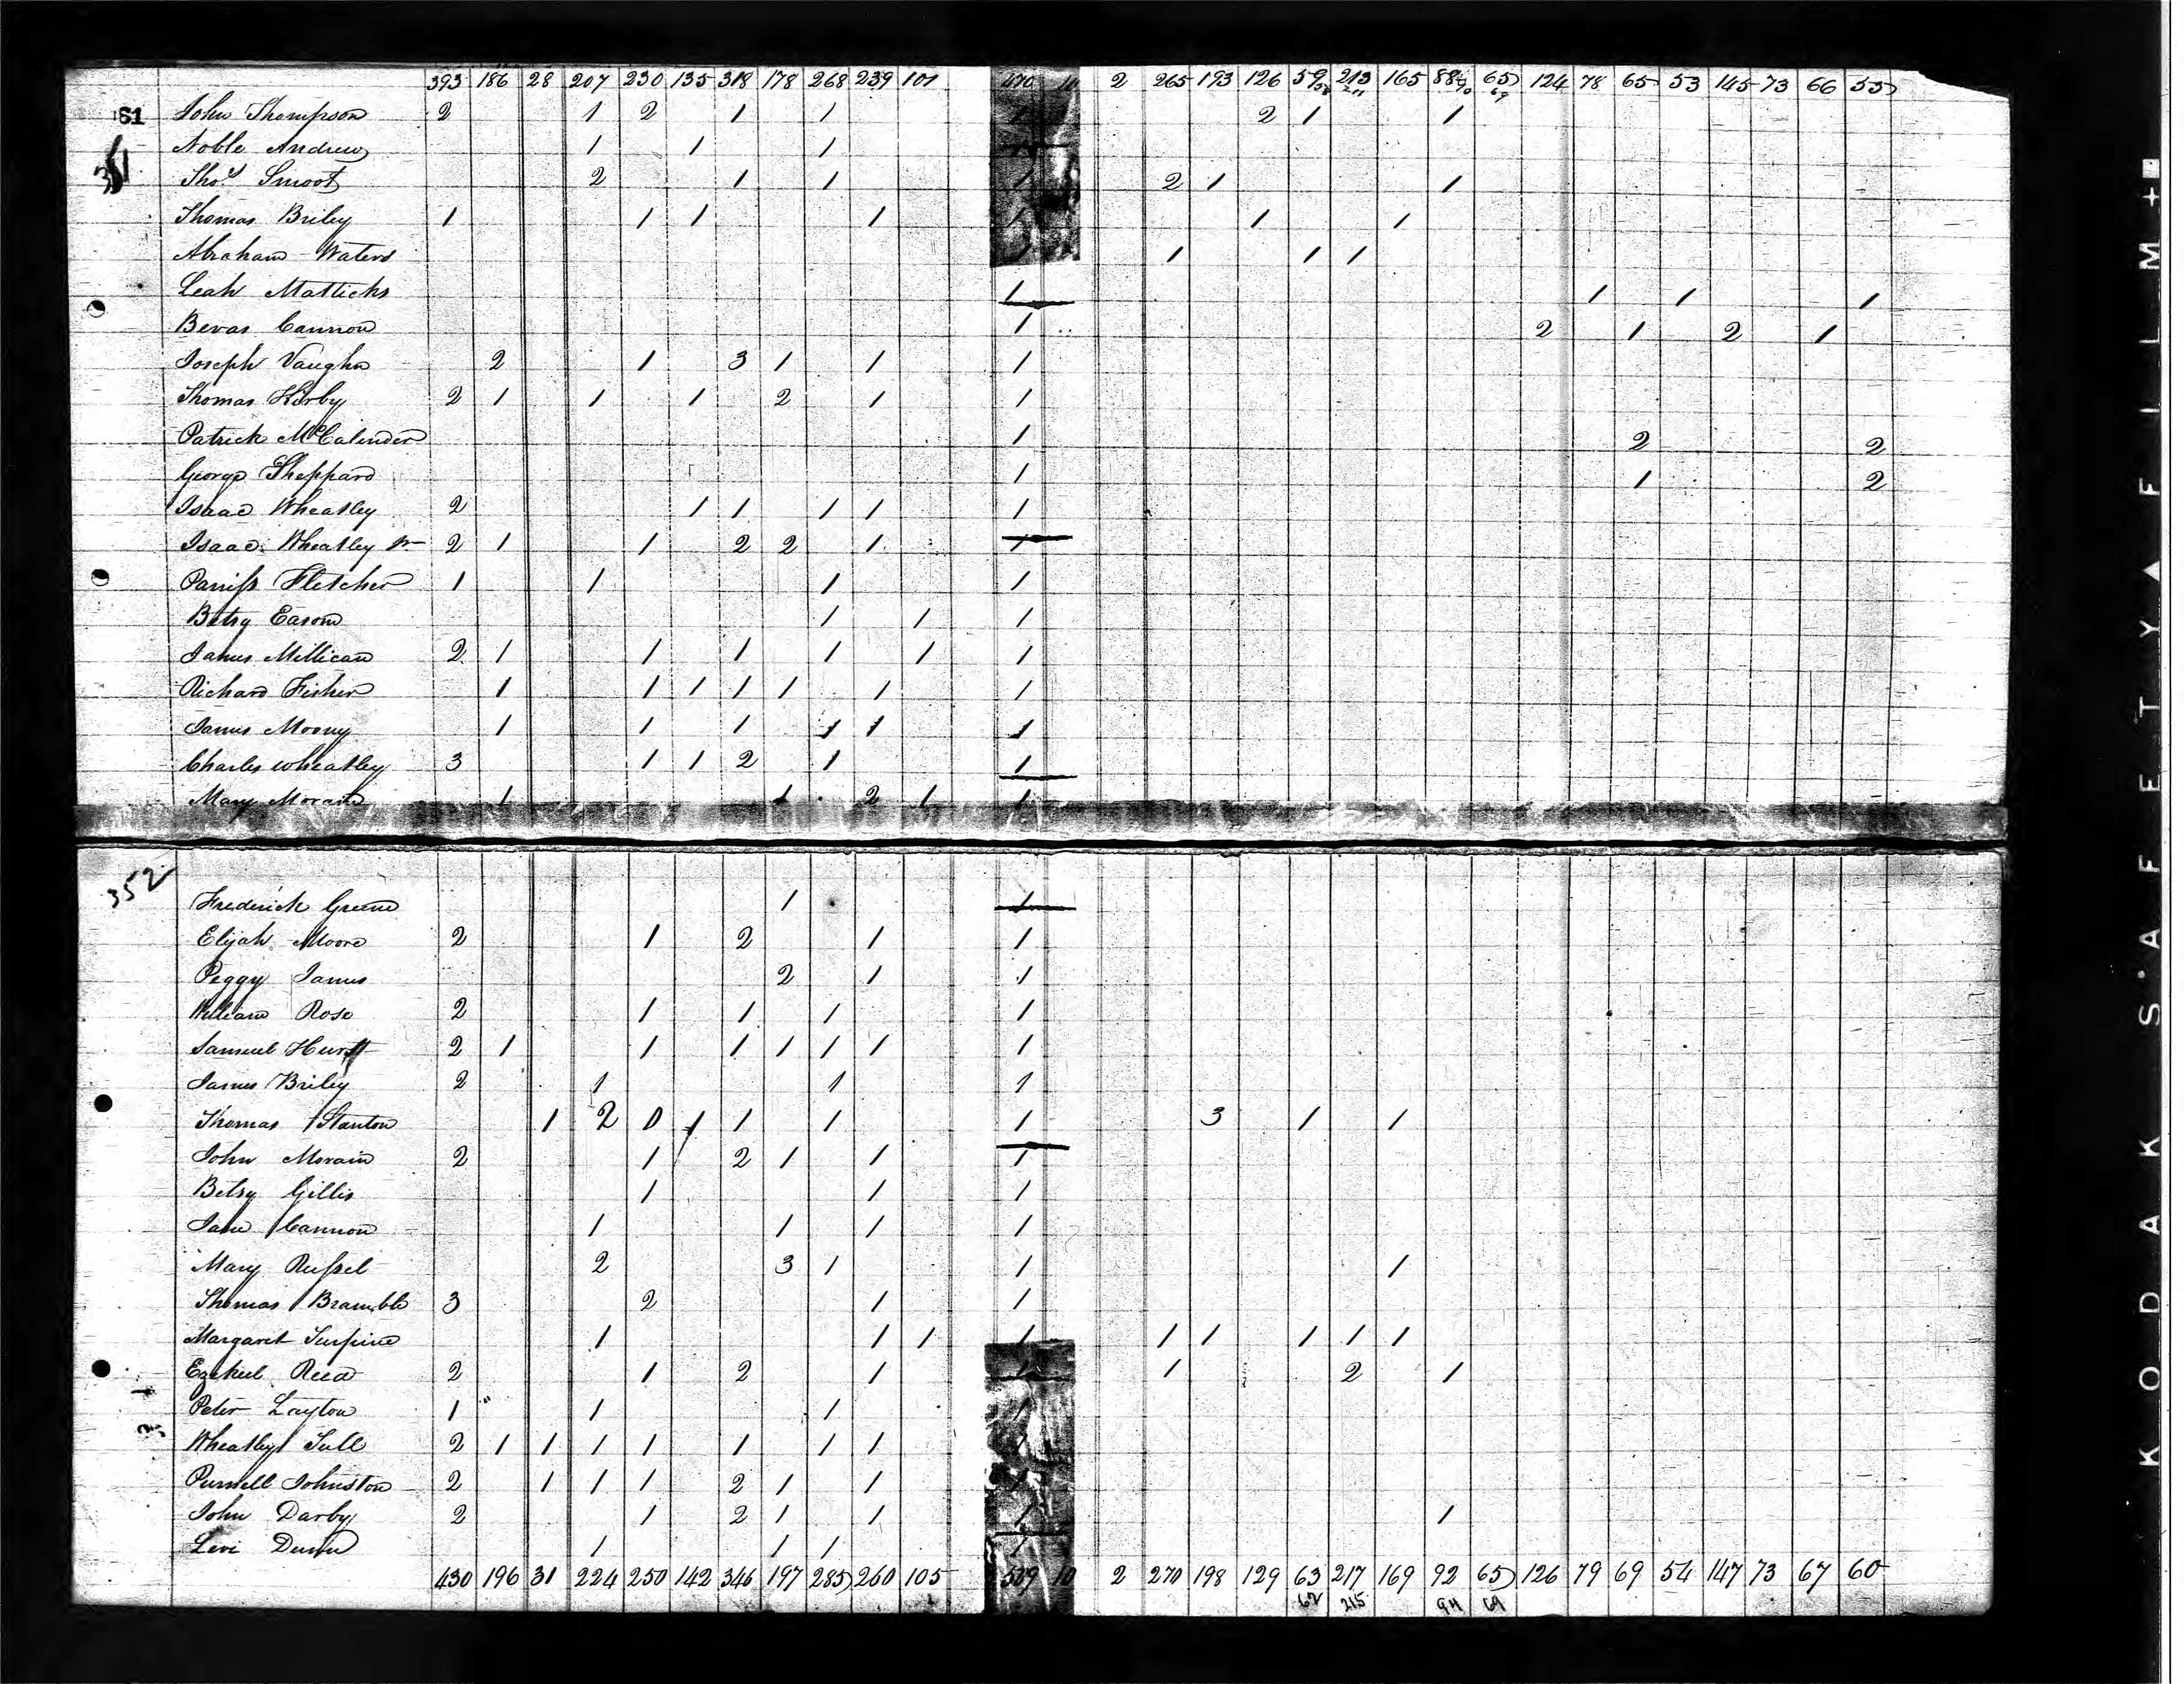 393 186 28 207 230 135 318 178 268 239 101 470 10 2 265 193 126 59 213 165 88 65 124 78 65 53 145 73 66 55
81 John Thompson 2 1 2 1 1 1 2 1 1
351 Noble Andrew 1 1 1
Thos Smoot 2 1 1 1 2 1 1
Thomas Briley 1 1 1 1 1 1 1
Abraham Waters 1 1 1 1
Leah Matticks 1 1 1 1
Bevas Cannon 1 2 1 2 1
Joseph Vaughn 2 1 3 1 1 1
Thomas Kirby 2 1 1 1 2 1 1
Patrick McCalinder 1 2 2
George Sheppard 1 1 2
Isaac Wheatley 2 1 1 1 1 1
Isaac Wheatley 2 1 1 2 2 1 1
Parriss Fletcher 1 1 1 1
Betsy Easom 1 1 1
James Millican 2 1 1 1 1 1 1
Richard Fisher 1 1 1 1 1 1 1
James Moony 1 1 1 1 1 1
Charles Wheatley 3 1 1 2 1 1
Mary Moraine 1 1 2 1 1
352
Frederick Greene 1 1
Elijah Moore 2 1 2 1 1
Peggy James 2 1 1
William Rose 2 1 1 1 1
Samuel Hurst 2 1 1 1 1 1 1 1
James Briley 2 1 1 1
Thomas Stanton 1 2 0 1 1 1 1 3 1 1
John Morain 2 1 2 1 1 1
Betsy Gillis 1 1 1
Jane Cannon 1 1 1 1
Mary Russel 2 3 1 1 1
Thomas Bramble 3 2 1 1
Margaret 1 1 1 1 1 1 1 1 1
Ezekiel Reed 2 1 2 1 1 1 2 1
Peter Layton 1 " 1 1 1
Wheatley Tull 2 1 1 1 1 1 1 1 1
Purnell Johnston 2 1 1 1 2 1 1 1
John Darby 2 1 2 1 1 1 1
Levi Dunn 1 1 1 1
430 196 31 224 250 142 346 197 285 260 105 509 10 2 270 198 129 63 217 169 92 65 126 79 69 54 147 73 67 60
62 215 94 69
KODAK S'AFETY▲FILM+